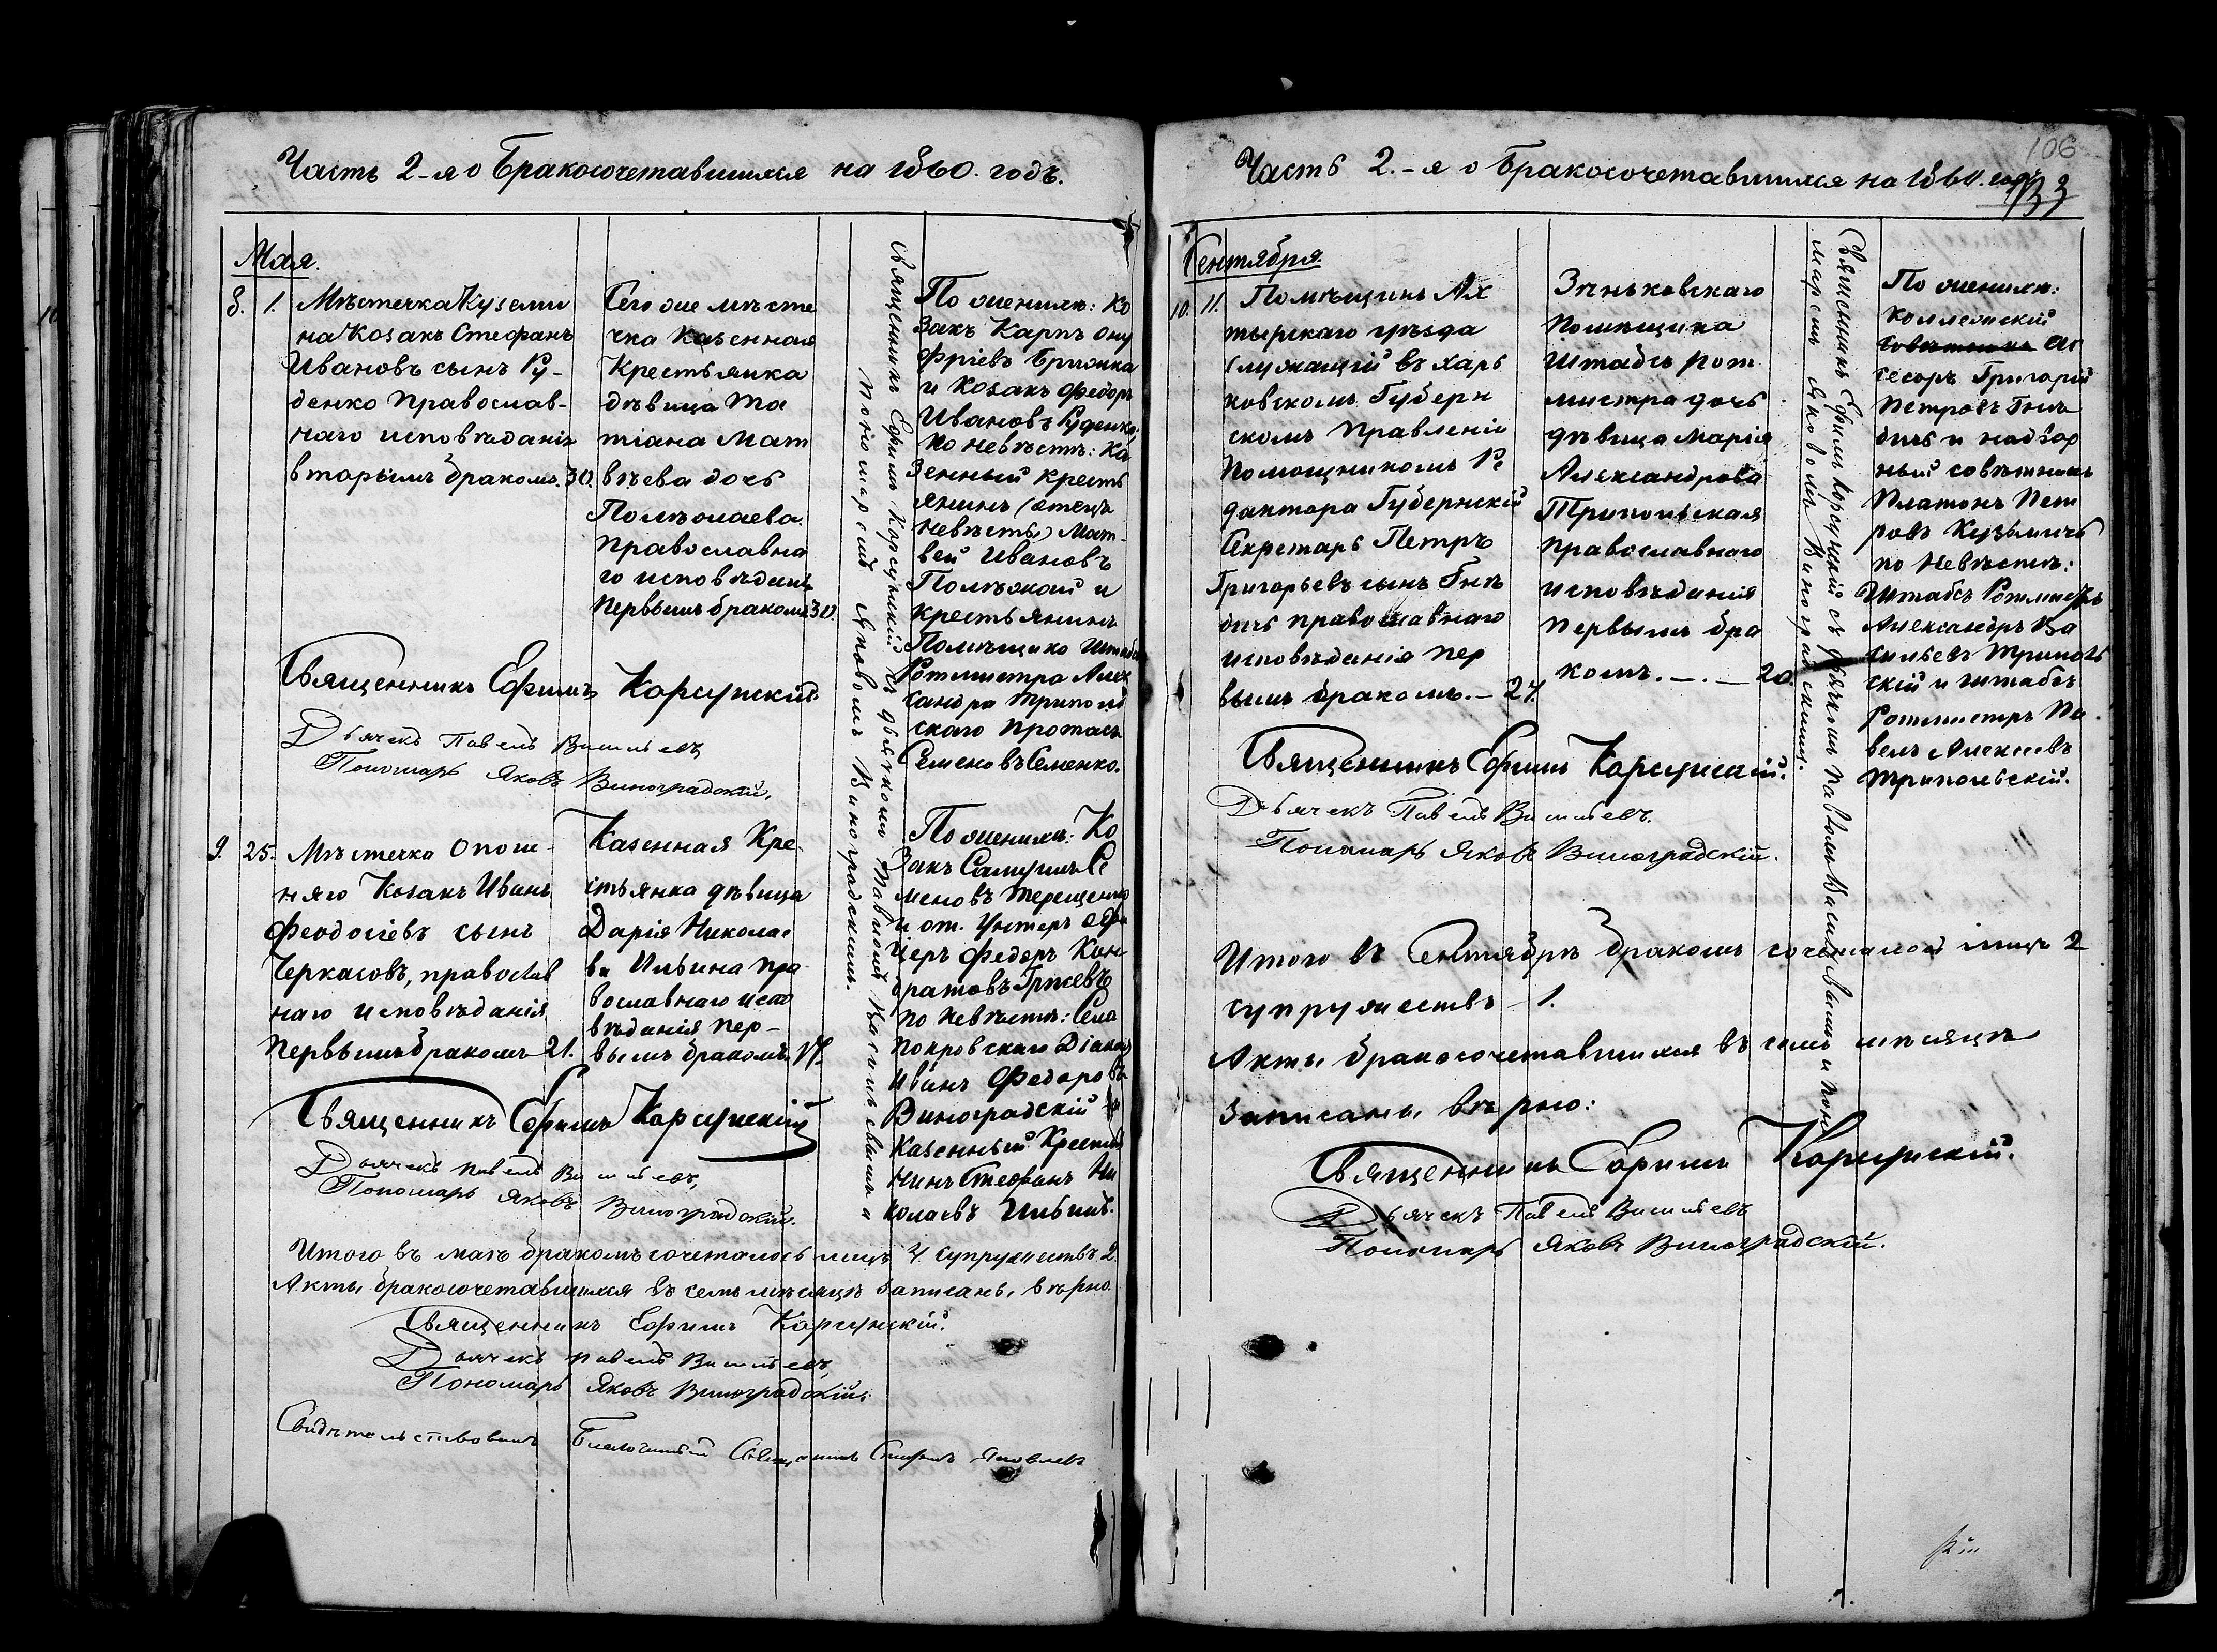 Часть 2-я о Бракосочетавшихся на 1860. годъ.
Мая.
8. 1. Мѣстечка Куземи
на Козакъ Стефанъ
Ивановъ сынъ Ру-
денко Православ-
наго исповѣданія
вторымъ бракомъ. 30.
Сего же мѣсте
чка Казенная
Крестьянка
дѣвица Та
тіана Мат
вѣева дочь
Полѣжаева.
Православна
го исповѣданія
Первымъ бракомъ 30.
Священникъ Ефимъ Корсунскій съ дьячкомъ Павломъ Васильевымъ и
Пономаремъ Яковомъ Виноградскимъ.
По женихѣ: Ко
закъ Карпъ Ону
фріевъ Бришка
и Козакъ Федоръ
Ивановъ Руденко;
по невѣстѣ: Ка
зенный Кресть
янинъ (отецъ
невѣсты) Мат-
вей Ивановъ
Полѣжай и
крестьянинъ
Помѣщика Штабсъ
Ротмистра Алек
сандра Триполь
скаго Протасъ
Семеновъ Семенко.
Священникъ Ефимъ Корсунскій
Дьячекъ Павелъ Васильевъ,
Пономарь Яковъ Виноградскій,
9. 25. Мѣстечка Опош-
няго Козакъ Иванъ
Феодосіевъ сынъ
Черкасовъ, православ
наго исповѣданія
Первымъ бракомъ 21.
Казенная Кре-
стьянка дѣвица
Дарія Николае
ва Ильина пра
вославнаго испо
вѣданія пер-
вымъ бракомъ 17.
По женихѣ: Ко
закъ Самуилъ Се
меновъ Терещенко
и от. Унтеръ Офи
церъ Федоръ Кон
дратовъ
по невѣстѣ: Села
Покровскаго Діаконъ
Иванъ Федоровъ
Виноградскій и
Казенный Крестья
нинъ Стефанъ Ни
колаевъ Ильинъ.
Священникъ Ефимъ Корсунскій
Дьячекъ Павелъ Васильевъ,
Пономарь Яковъ Виноградскій.
Итого въ маѣ бракомъ сочеталось лицъ 4. супружествъ 2.
Акты бракосочетавшихся въ семъ мѣсяцѣ записаны вѣрно.
Священникъ Ефимъ Корсунскій.
Дьячекъ Павелъ Васильевъ,
Пономарь Яковъ Виноградскій.
Свидѣтельствовалъ Благочинный Священникъ Яковлевъ
106
Часть 2.-я о Бракосочетавшихся на 1860. годъ
133
Сентября.
10. 11. Помѣщикъ Ах
тырскаго уѣзда
служащій въ Харь
ковскомъ Губерн
скомъ Правленіи
Помощникомъ Ре
дактора Губернскій
Секретарь Петръ
Григорьевъ сынъ Гнѣ
дичь православнаго
исповѣданія пер
вымъ бракомъ. — 24.
Зѣньковскаго
Помѣщика
Штабсъ Рот
мистра дочь
дѣвица Марія
Александрова
Трипольская
православнаго
исповѣданія
первымъ бра
комъ. — . — 20.
Священникъ Ефимъ Корсунскій съ дьячкомъ Павломъ Васильевымъ и Поно
маремъ Яковомъ Виноградскимъ.
По женихѣ:
Коллежскій
Совѣтникъ Ас
сесоръ Григорій
Петровъ Гнѣ
дичь и надвор
ный совѣтникъ
Платонъ Пет
ровъ Кузьмичь
по Невѣстѣ:
Штабсъ Ротмистръ
Александръ Ва
сильевъ Триполь
скій и штабсъ
Ротмистръ Па
велъ Алексѣевъ
Трипольскій.
Священникъ Ефимъ Корсунскій.
Дьячекъ Павелъ Васильевъ.
Пономарь Яковъ Виноградскій.
Итого въ Сентябрѣ бракомъ сочеталось лицъ 2
супружествъ — 1.
Акты бракосочетавшихся въ семъ мѣсяцѣ
записаны вѣрно:
Священникъ Ефимъ Корсунскій.
Дьячекъ Павелъ Васильевъ
Пономарь Яковъ Виноградскій.